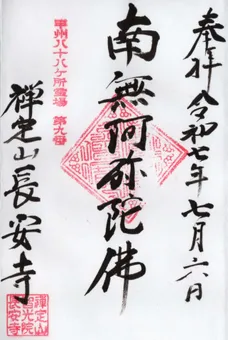 奉拝 令和七年七月六日
南無阿弥陀佛
甲州八十八ヶ所霊場 第九番
禅定山長安寺
禅定山
長安寺